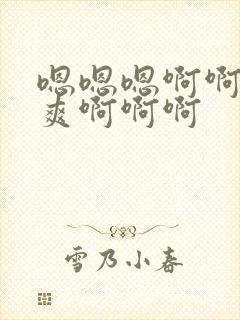 嗯嗯嗯啊啊
爽啊啊啊
雪乃小春